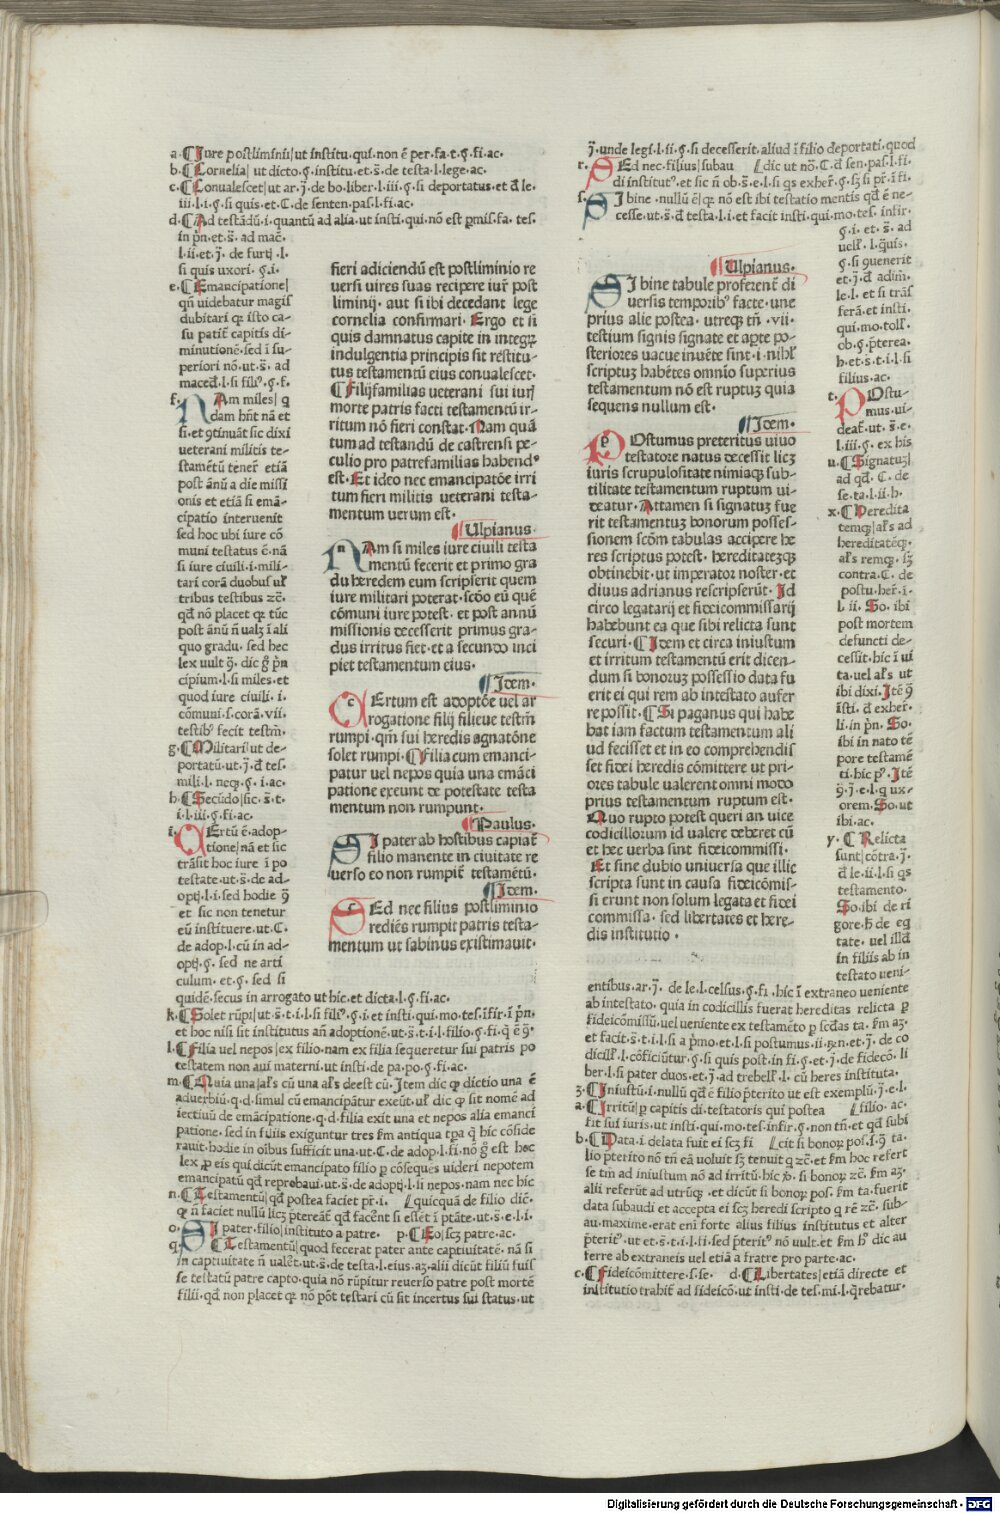 a. Iure postliminii| ut institu. qui. non ē per. fa. t. §. fi. ac.
b. Cornelia| ut dicto. §. institu. et. s̄. de testa. l. lege. ac.
c. Conualescet| ut ar. j̄. de bo. liber. l. iii. §. si deportatus. et. đ le.
iii. l. i. §. si quis. et. C. de senten. pas. l. fi. ac.
d. Ad testādū. i. quantū ad alia. ut insti. qui. nō est p̱mis. fa. tes.
in p̄n. et. s̄. ad mac̄.
l. ii. et. j̄. de furtj. l.
si quis uxori. §. i.
e. Emancipatione|
qn̄ uidebatur magis
dubitari qꝫ isto ca-
su patit̄ capitis di-
minutionē. sed ī su-
periori nō. ut. s̄. ad
maced̄. l. si filiꝰ. §. f.
f. Nam miles| q
dam hn̄t nā et
si. et ꝯtinuāt sic dixi
ueterani militis te-
stamētū tener̄ etiā
post ānū a die missi
onis et etiā si emā-
cipatio interuenit
sed hoc ubi iure cō
muni testatus ē. nā
si iure ciuili. i. mili-
tari corā duobus ul̄
tribus testibus zc̄.
qđ nō placet qꝫ tūc
post ānū n̄ ualꝫ ī ali
quo gradu. sed hec
lex uult ꝯ̄. dic ḡ p̄n
cipium. l. si miles. et
quod iure ciuili. i.
cōmuni. s. corā. vii.
testibꝰ fecit testm̄.
g. Militari| ut de-
portatū. ut. j̄. đ tes.
mili. l. neqꝫ. §. i. ac.
h. Secūdo| sic. s̄. t.
i. l. iii. §. fi. ac.
i. Certū ē. adop-
tione| nā et sic
trāsit hoc iure ī po
testate. ut. s̄. de ad-
optj. l. i. sed hodie ꝯ̄
et sic non tenetur
eū instituere. ut. C.
de adop. l. cū in ad-
optj. §. sed ne arti
culum. et. §. sed si
quidē. secus in arrogato ut hic. et dicta. l. §. fi. ac.
k. Solet rūpi| ut. s̄. t. i. l. si filiꝰ. §. i. et insti. qui. mo. tes. īfir. ī p̄n.
et hoc nisi sit institutus an̄ adoptionē. ut. s̄. t. i. l. filio. §. fi. q̄ ē ꝯ̄.
l. Filia uel nepos| ex filio. nam ex filia sequeretur sui patris po
testatem non aui materni. ut insti. de pa. po. §. fi. ac.
m. Quia una| al's cū una al's deest cū. Item dic qꝫ dictio una ē
aduerbiū. q. d. simul cū emancipātur exeūt. ul̄ dic qꝫ sit nomē ad
iectiuū de emācipatione. q. d. filia exit una et nepos alia emanci
patione. sed in filiis exiguntur tres fm̄ antiqua tꝑa q̄ hic cōside
rauit. hodie in oībus sufficit una. ut. C. de adop. l. fi. nō ḡ est hec
lex ꝓ eis qui dicūt emancipato filio ꝑ cōseques uideri nepotem
emancipatū qđ reprobaui. ut. s̄. de adoptj. l. si nepos. nam nec hic
n. Testamentū| qđ postea faciet pr̄. i. quicquā de filio dic̄.
qꝫ n̄ faciet nullū licꝫ p̄tereat̄ qđ facen̄t si essēt ī ptāte. ut. s̄. e. l. i.
o. Si pater. filio| instituto a patre. p. Eo| scꝫ patre. ac.
q. Testamentū| quod fecerat pater ante captiuitatē. nā si
in captiuitate n̄ ualet. ut. s̄. de testa. l. eius. aꝫ. alii dicūt filiū fuis
se testatū patre capto. quia nō rūpitur reuerso patre post mortē
filii. qđ non placet qꝫ nō pōt testari cū sit incertus sui status. ut
fieri adiciendū est postliminio re
uersi uires suas recipere iur̄ post
liminij. aut si ibi decedant lege
cornelia confirmari. Ergo et si
quis damnatus capite in integꝝ
indulgentia principis sit restitu-
tus testamentū eius conualescet.
Filijfamilias ueterani sui iurꝫ
morte patris facti testamentū ir-
ritum nō fieri constat. Nam quā
tum ad testandū de castrensi pe-
culio pro patrefamilias habendꝰ
est. Et ideo nec emancipatōe irri
tum fieri militis ueterani testa-
mentum uerum est.
Ulpianus.
Nam si miles iure ciuili testa
mentū fecerit et primo gra
du heredem eum scripserit quem
iure militari poterat. scdo eū quē
cōmuni iure potest. et post annū
missionis decesserit primus gra-
dus irritus fiet. et a secundo inci
piet testamentum eius.
Idem.
Certum est adoptōe uel ar
rogatione filij filieue testm̄
rumpi. qm̄ sui heredis agnatōne
solet rumpi. Filia cum emanci-
patur uel nepos quia una emāci
patione exeunt de potestate testa
mentum non rumpunt.
Paulus.
Si pater ab hostibus capiat̄
filio manente in ciuitate re
uerso eo non rumpit̄ testamētū.
Idem.
Sed nec filius postliminio
rediēs rumpit patris testa-
mentum ut sabinus existimauit.
j̄. unde legi. l. ii. §. si decesserit. aliud ī filio deportati. quod
r. Sed nec. filius| subau dic ut nō. C. đ sen. pas. l. fi.
di institutꝰ. et sic n̄ ob. s̄. e. l. si qs exher̄. §. sꝫ si pr̄. ī fi.
s. Si bine. nullū ē| qꝫ nō est ibi testatio mentis qđ ē ne-
cesse. ut. s̄. đ testa. l. i. et facit insti. qui. mo. tes. infir.
§. i. et. s̄. ad
uell̄. l. q̄uis.
§. si ꝯuenerit
et. j̄. đ adim̄.
le. l. et si trās
ferā. et insti.
qui. mo. toll̄.
ob. §. p̄terea.
h. et. s̄. t. i. l. si
filius. ac.
t. Postu-
mus. ui-
deat̄. ut. s̄. e.
l. iii. §. ex his
u. Signatuꝫ|
ad qđ. C. de
se. ta. l. ii. h.
x. Heredita
temqꝫ| al's ad
hereditatēqꝫ.
al's remqꝫ. sꝫ
contra. C. de
postu. her̄. ī.
l. ii. So. ibi
post mortem
defuncti de-
cessit. hic ī ui
ta. uel al's ut
ibi dixi. Itē ꝯ̄
īsti. đ exher̄.
li. in p̄n. So.
ibi in nato tē
pore testamē
ti. hic pꝰ. Itē
ꝯ̄. j̄. e. l. q ux-
orem. So. ut
ibi. ac.
y. Relicta
sunt| cōtra. j̄.
đ le. ii. l. si qs
testamento.
So. ibi de ri
gore. h̄ de eq
tate. uel illđ
in filiis ab in
testato ueni-
entibus. ar. j̄. de le. l. celsus. §. fi. hic ī extraneo ueniente
ab intestato. quia in codicillis fuerat hereditas relicta ꝑ
fideicōmissū. uel ueniente ex testamēto ꝑ scđas ta. fm̄ aꝫ.
et facit. s̄. t. i. l. si a p̄mo. et. l. si postumus. ii. r̄n. et. j̄. de co
dicill̄. l. cōficiūtur. §. si quis post. in fi. §. et. j̄. de fidecō. li
ber. l. si pater duos. et. j̄. ad trebell̄. l. cū heres instituta.
z. Iniustū. i. nullū qđ ē filio p̄terito ut est exemplū. j̄. e. l.
a. Irritū| ꝑ capitis di. testatoris qui postea filio. ac.
fit sui iuris. ut insti. qui. mo. tes. infir. §. non tn̄. et qđ subi
b. Data. i. delata fuit ei scꝫ fi cit si bonoꝝ pos. §. ꝯ̄ ta.
lio p̄terito nō tn̄ eā uoluit sꝫ tenuit q zc̄. et fm̄ hoc refert
se tm̄ ad iniustum nō ad irritū. hic ꝟ. si bonoꝝ zc̄. fm̄ aꝫ.
alii referūt ad utrūqꝫ. et dicūt si bonoꝝ pos. fm̄ ta. fuerit
data subaudi et accepta ei scꝫ heredi scripto q rē zc̄. sub-
au. maxime. erat eni forte alius filius institutus et alter
p̄teritꝰ. ut et. s̄. t. i. l. fi. sed p̄teritꝰ nō uult. et fm̄ hꝰ dic au
ferre ab extraneis uel etiā a fratre pro parte. ac.
c. Fideicōmittere. s. se. d. Libertates| etiā directe et
institutio trahit̄ ad fideicō. ut insti. de tes. mi. l. q̄rebatur.
Ulpianus.
Si bine tabule proferent̄ di
uersis temporibꝰ facte. une
prius alie postea. utreqꝫ tn̄. vii.
testium signis signate et aꝑte po-
steriores uacue inuēte sunt. i. nihl̄
scriptuꝫ habētes omnīo superius
testamentum nō est ruptuꝫ quia
sequens nullum est.
Idem.
Postumus preteritus uiuo
testatore natus decessit licꝫ
iuris scrupulositate nimiaqꝫ sub-
tilitate testamentum ruptum ui-
deatur. Attamen si signatuꝫ fue
rit testamentuꝫ bonorum posses-
sionem scdm tabulas accipere he
res scriptus potest. hereditatezqꝫ
obtinebit. ut imperator noster. et
diuus adrianus rescripserūt. Id
circo legatarij et fideicommissarij
habebunt ea que sibi relicta sunt
securi. Idem et circa iniustum
et irritum testamentū erit dicen-
dum si bonoruꝫ possessio data fu
erit ei qui rem ab intestato aufer
re possit. Si paganus qui habe
bat iam factum testamentum ali
ud fecisset et in eo comprehendis
set fidei heredis cōmittere ut pri-
ores tabule ualerent omni modo
prius testamentum ruptum est.
Quo rupto potest queri an uice
codicillorum id ualere deberet cū
et hec uerba sint fideicommissi.
Et sine dubio uniuersa que illic
scripta sunt in causa fideicōmis-
si erunt non solum legata et fidei
commissa. sed libertates et here-
dis institutio.
Digitalisierung gefördert durch die Deutsche Forschungsgemeinschaft - DFG